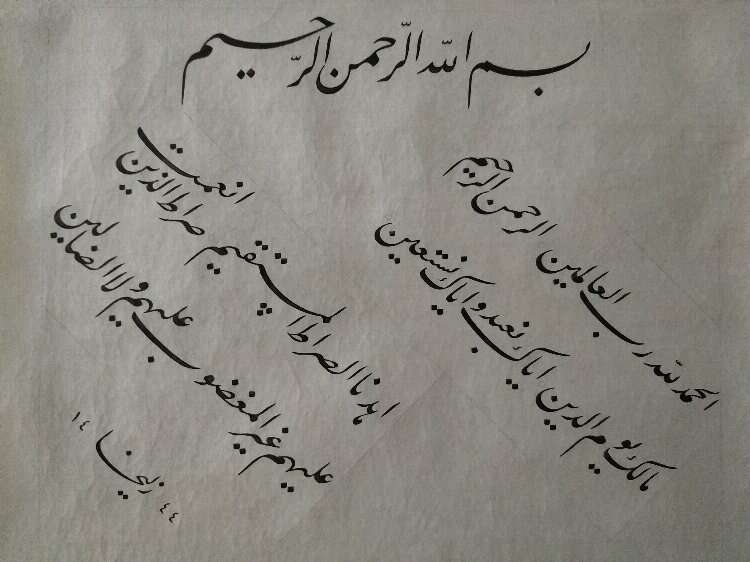 بسم اللّه الرّحمن الرّحیم
الحمد للّه رب العالمین الرحمن الرحیم
مالک یوم الدین ایاک نعبد و ایاک نستعین
اهدنا الصراط المستقیم صراط الذین انعمت
علیهم غیر المغضوب علیهم و لا الضالین
زلیخا
١٤٤٤